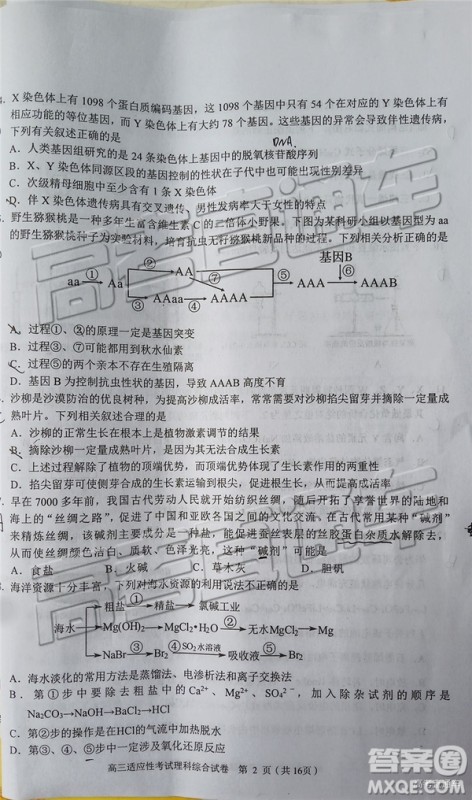 X 染色体上有 1098 个蛋白质编码基因，这 1098 个基因中只有 54 个在对应的 Y 染色体上有
相应功能的等位基因，而 Y 染色体上有大约 78 个基因。X 染色体上基因的异常会导致伴性遗传病，
下列有关叙述正确的是
DNA
A．人类基因组研究的是 24 条染色体上基因中的脱氧核苷酸序列
B．X、Y 染色体同源区段的基因控制的性状在子代中也可能出现性别差异
C．次级精母细胞中含有 1 条 X 染色体
D．伴 X 染色体遗传病具有交叉遗传、男性发病率大于女性的特点
野生猕猴桃是一种多年生富含维生素 C 的二倍体小野果。下图为某科研小组以基因型为 aa
的野生猕猴桃种子为实验材料，培育抗虫无籽猕猴桃新品种的过程。下列相关分析正确的是
基因B
② ⑥
aa ① Aa AA ⑤ AAA AAAB
③ AAaa ④ AAAA ⑦
A．过程①、③的原理一定是基因突变
B．过程③、⑦可能都用到秋水仙素
C．过程⑤的两个亲本不存在生殖隔离
D．基因 B 为控制抗虫性状的基因，导致 AAAB 高度不育
沙柳是沙漠防治的优良树种，为提高沙柳成活率，常常需要对沙柳掐尖留芽并摘除一定量成
熟叶片。下列相关叙述合理的是
A．沙柳的正常生长在根本上是植物激素调节的结果
B．摘除沙柳一定量成熟叶片，是因为其无法合成生长素
C．上述现象体现了植物的顶端优势，而顶端优势体现了生长素作用的两重性
D．掐尖留芽可使侧芽合成的生长素减少，从而提高成活率
早在 7000 多年前，我国古代劳动人民就开始纺织丝绸，随后开拓了享誉世界的陆地和
海上的“丝绸之路”，促进了中国和亚欧各国之间的文化交流，在古代常用某种“碱剂”
来精炼丝绸，该碱剂的主要成分是一种盐，能促进蚕丝表层的丝胶蛋白杂质水解除去，
从而使丝绸颜色洁白、质感柔软、色泽光亮，这种“碱剂”可能是
A．食盐 B．火碱 C．草木灰 D．胆矾
海洋资源十分丰富，下列对海水资源的利用说法不正确的是
① 粗盐 ② 精盐 氯碱工业
海水 Mg(OH)₂ MgCl₂•H₂O ③ 无水MgCl₂ Mg
NaBr Br₂ ④ SO₂水溶液 吸收液 ⑤ Br₂
A．海水淡化的常用方法是蒸馏法、电渗析法和离子交换法
B．第①步中要除去粗盐中的 Ca²⁺、Mg²⁺、SO₄²⁻，加入除杂试剂的顺序是
Na₂CO₃→NaOH→BaCl₂→HCl
C．第③步的操作是在HCl的气流中加热脱水
D．第③、④、⑤步中都涉及氧化还原反应
高三适应性考试理科综合试卷 第 2 页（共16页）
高考直通车
高考直通车
高考直通车
答案圈
MXQE.COM